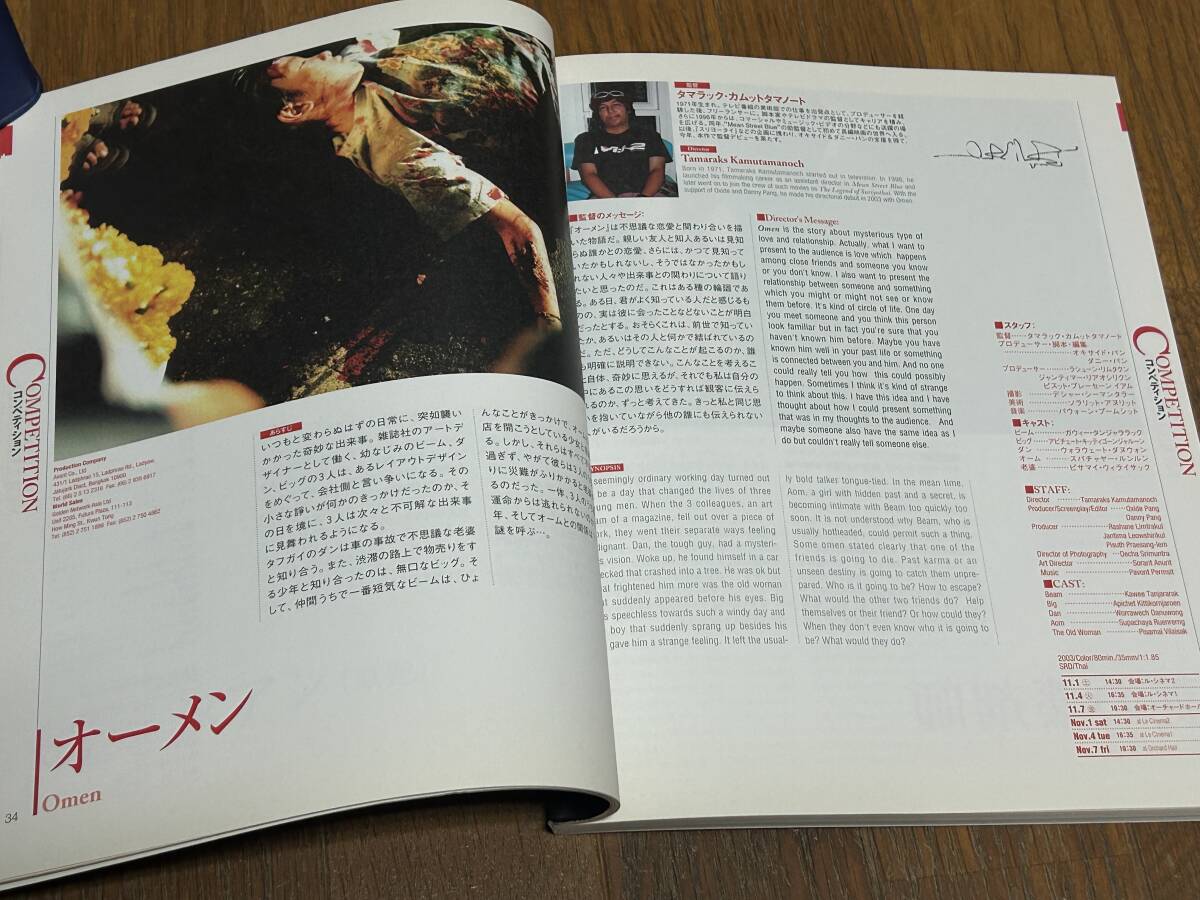 COMPETITION
コンペティション
Production Company
Avant Co., Ltd
World Sales
Golden Network Asia Ltd
あらすじ
いつもと変わらぬはずの日常に、突如襲い
かかった奇妙な出来事。雑誌社のアートデ
ザイナーとして働く、幼なじみのビーム、ダ
ン、ビッグの3人は、あるレイアウトデザイン
をめぐって、会社側と言い争いになる。その
小さな諍いが何かのきっかけだったのか、そ
の日を境に、3人は次々と不可解な出来事
に見舞われるようになる。
タフガイのダンは車の事故で不思議な老婆
と知り合う。また、渋滞の路上で物売りをす
る少年と知り合ったのは、無口なビッグ。そ
して、仲間うちで一番短気なビームは、ひょ
んなことがきっかけで、オー
店を開こうとしている少女
る。しかし、それらはすべて
過ぎず、やがて彼らは3人の
りに災難がふりかかると
るのだった。一体、3人の
運命からは逃れられないの
年、そしてオームとの関係
謎を呼ぶ…。
オーメン
Omen
34
監督
タマラック・カムットタマノート
1971年生まれ。テレビ番組の美術館での仕事を出発点として、プロデューサーを経
験した後、フリーランサーに。脚本家やテレビドラマの監督としてキャリアを積み、
さらに1996年からは、コマーシャルやミュージック・ビデオの分野などにも活躍の場
を広げる。同年、"Mean Street Blue"の助監督として初めて長編映画の世界へ入る。
以後、『スリヨータイ』などの企画に携わり、オキサイド&ダニー・パンの支援を得て、
今年、本作で監督デビューを果たす。
Director
Tamaraks Kamutamanoch
Born in 1971, Tamaraks Kamutamanoch started out in television. In 1996, he
launched his filmmaking career as an assistant director in Mean Street Blue and
later went on to join the crew of such movies as The Legend of Suriyothai. With the
support of Oxide and Danny Pang, he made his directorial debut in 2003 with Omen.
■監督のメッセージ:
『オーメン』は不思議な恋愛と関わり合いを描
いた物語だ。親しい友人と知人あるいは見知
らぬ誰かとの恋愛、さらには、かつて見知って
いたかもしれないし、そうではなかったかもし
れない人々や出来事との関わりについて語り
たいと思ったのだ。これはある種の輪廻であ
る。ある日、君がよく知っている人だと感じるも
のの、実は彼に会ったことなどないことが明白
だったとする。おそらくこれは、前世で知ってい
たか、あるいはその人と何かで結ばれているの
だ。ただ、どうしてこんなことが起こるのか、誰
も明確に説明できない。こんなことを考えるこ
と自体、奇妙に思えるが、それでも私は自分の
中にあるこの思いをどうすれば観客に伝えら
れるのか、ずっと考えてきた。きっと私と同じ思
いを抱いていながら他の誰にも伝えられない
がいるだろうから。
■Director's Message:
Omen is the story about mysterious type of
love and relationship. Actually, what I want to
present to the audience is love which happens
among close friends and someone you know
or you don't know. I also want to present the
relationship between someone and something
which you might or might not see or know
them before. It's kind of circle of life. One day
you meet someone and you think this person
look familiar but in fact you're sure that you
haven't known him before. Maybe you have
known him well in your past life or something
is connected between you and him. And no one
could really tell you how this could possibly
happen. Sometimes I think it's kind of strange
to think about this. I have this idea and I have
thought about how I could present something
that was in my thoughts to the audience. And
maybe someone also have the same idea as I
do but couldn't really tell someone else.
SYNOPSIS
seemingly ordinary working day turned out
be a day that changed the lives of three
ung men. When the 3 colleagues, an art
m of a magazine, tell out over a piece of
rk, they went their separate ways feeling
dignant. Dan, the tough guy, had a myster-
s vision. Woke up, he found himself in a car
ecked that crashed into a tree. He was ok but
at frightened him more was the old woman
t suddenly appeared before his eyes. Big
s speechless towards such a windy day and
boy that suddenly sprang up besides his
gave him a strange feeling. It left the usual-
ly bold talker tongue-tied. In the mean time,
Aom, a girl with hidden past and a secret, is
becoming intimate with Beam too quickly too
soon. It is not understood why Beam, who is
usually hotheaded, could permit such a thing.
Some omen stated clearly that one of the
friends is going to die. Past karma or an
unseen destiny is going to catch them unpre-
pared. Who is it going to be? How to escape?
What would the other two friends do? Help
themselves or their friend? Or how could they?
When they don't even know who it is going to
be? What would they do?
COMPETITION
コンペティション
■スタッフ:
監督……タマラック・カムットタマノート
プロデューサー・脚本・編集
オキサイド・パン
ダニー・パン
プロデューサー……ラシェーン・リムタクン
ジャンティマー・リアオシリクン
ピスット・プレーセーン イアム
撮影……デシャー・シーマンタラー
美術……ソラリット・アヌリット
音楽……パウォーン・プームシット
■キャスト:
ビーム……ガウィー・タンジャララック
ビッグ……アピチェート・キッティゴーンジャルーン
ダン……ウォラウェート・ダヌウォン
オーム……スパチャヤー・ルンルン
老婆……ピサマイ・ウィライサック
■STAFF:
Director……Tamaraks Kamutamanoch
Producer/Screenplay/Editor……Oxide Pang
Danny Pang
Producer……Rashane Limtrakul
Jantima Leowshirikul
Pisuth Praesang-Iem
Director of Photography……Decha Srimuntra
Art Director……Sorarit Anurit
Music……Pavont Permsit
■CAST:
Beam……Kawee Tanjararak
Big……Apichet Kittikornjaroen
Dan……Worrawech Danuwong
Aom……Supachaya Ruenreng
The Old Woman……Pisamai Vilaisak
2003/Color/80min./35mm/1:1.85
SRD/Thai
11.1 土 14:30 会場:ル・シネマ2
11.4 火 16:35 会場:ル・シネマ1
11.7 金 10:30 会場:オーチャードホー
Nov.1 sat 14:30 at Le Cinema2
Nov.4 tue 16:35 at Le Cinema1
Nov.7 fri 10:30 at Orchard Hall